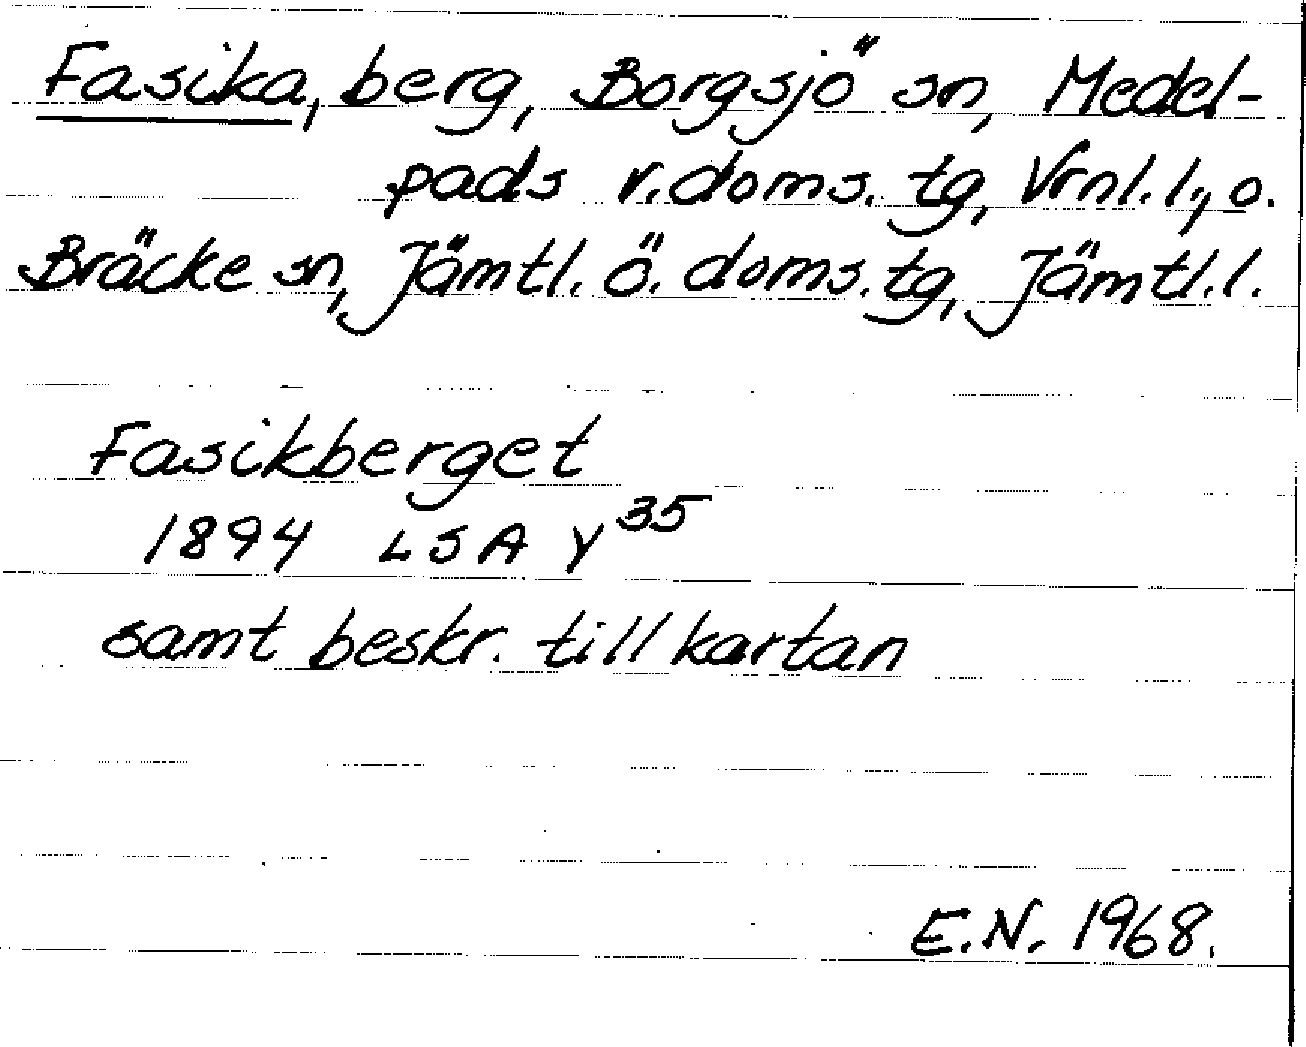 Fasika, berg, Borgsjö sn, Medel-
pads v. doms. tg, Vrnl. l., o.
Bräcke sn, Jämtl. ö. doms. tg, Jämtl. l.
Fasikberget
1894 LSA Y 35
samt beskr. till kartan
E.N. 1968.